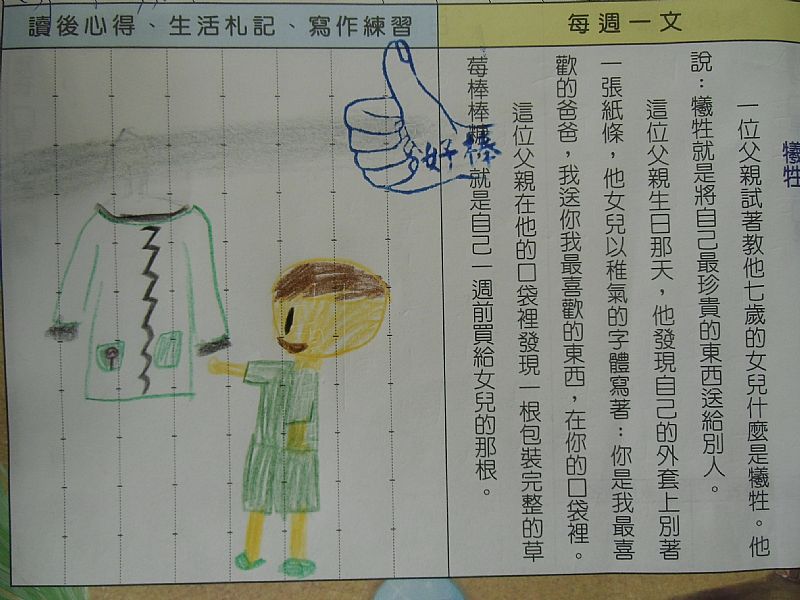 讀後心得、生活札記、寫作練習
每週一文
犧牲
一位父親試著教他七歲的女兒什麼是犧牲。他
說：犧牲就是將自己最珍貴的東西送給別人。
這位父親生日那天，他發現自己的外套上別著
一張紙條，他女兒以稚氣的字體寫著：你是我最喜
歡的爸爸，我送你我最喜歡的東西，在你的口袋裡。
這位父親在他的口袋裡發現一根包裝完整的草
莓棒棒糖就是自己一週前買給女兒的那根。
好棒